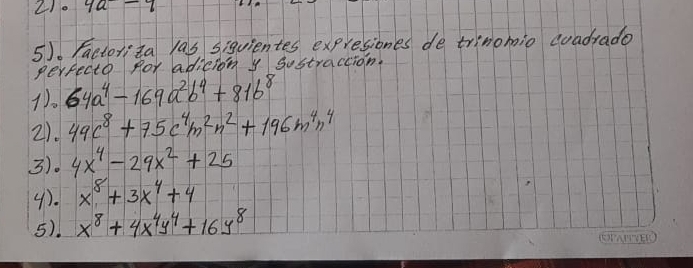 5). Factoriza las siguientes expresiones de trinomio cuadrado
perfecto por adición y sustracción.
1). 64a⁴ - 169a²b⁴ + 81b⁸
2). 49c⁸ + 75c⁴m²n² + 196m⁴n⁴
3). 4x⁴ - 29x² + 25
4). x⁸ + 3x⁴ + 4
5). x⁸ + 4x⁴y⁴ + 16y⁸